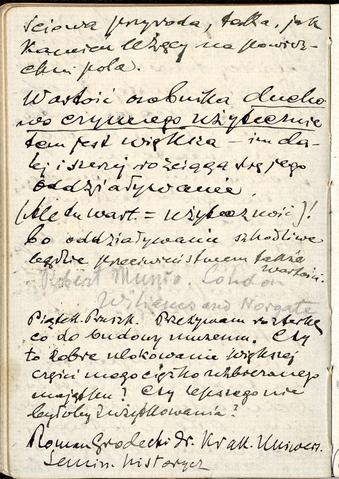 ściowa przyroda, taka, jak
kamień leżący na powierz-
chni pola.
Wartość osobnika ducho-
wo czynnego użytecznie
tem jest większa — im da-
lej i szerzej rozciąga się jego
oddziaływanie.
(Ale tu wart. = użyteczność)!
bo oddziaływanie szkodliwe
będzie przeciwieństwem także
wartości.
Robert Munro. London
Williams and Norgate
Piątek. Przeżywam rozterkę
co do budowy muzeum. Czy
to dobre ulokowanie większej
części mego ciężko uzbieranego
majątku? Czy lepszego nie
byłoby zużytkowania?
Roman Grodecki dr. Krak. Uniwer.
Semin. historycz